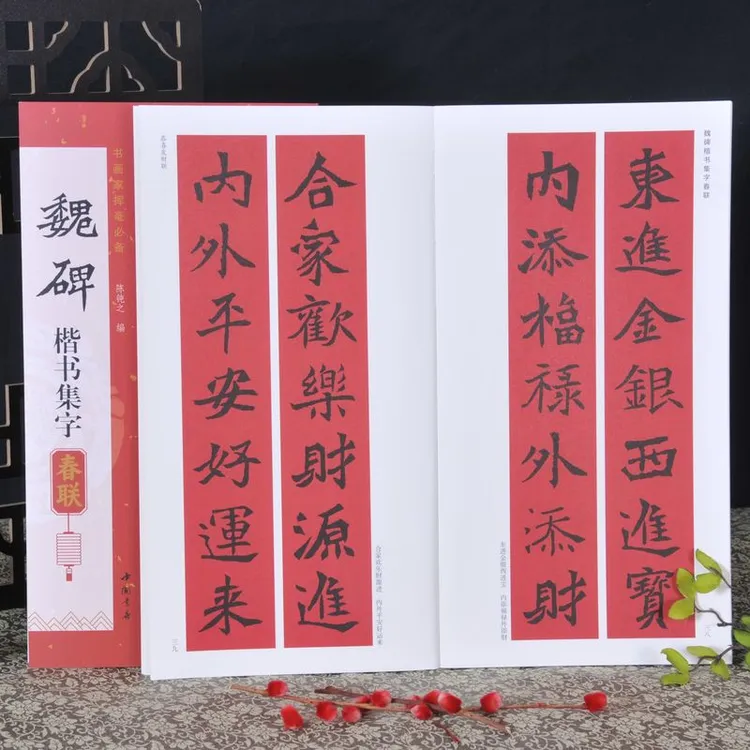 书画家挥毫必备
魏碑
楷书集字
春联
陈钝之 编
中国书店
魏碑楷书集字春联
東進金銀西進寶
内添福祿外添財
东进金银西进宝 内添福禄外添财
三八
恭喜发财联
合家歡樂財源進
内外平安好運来
合家欢乐财源进 内外平安好运来
三九